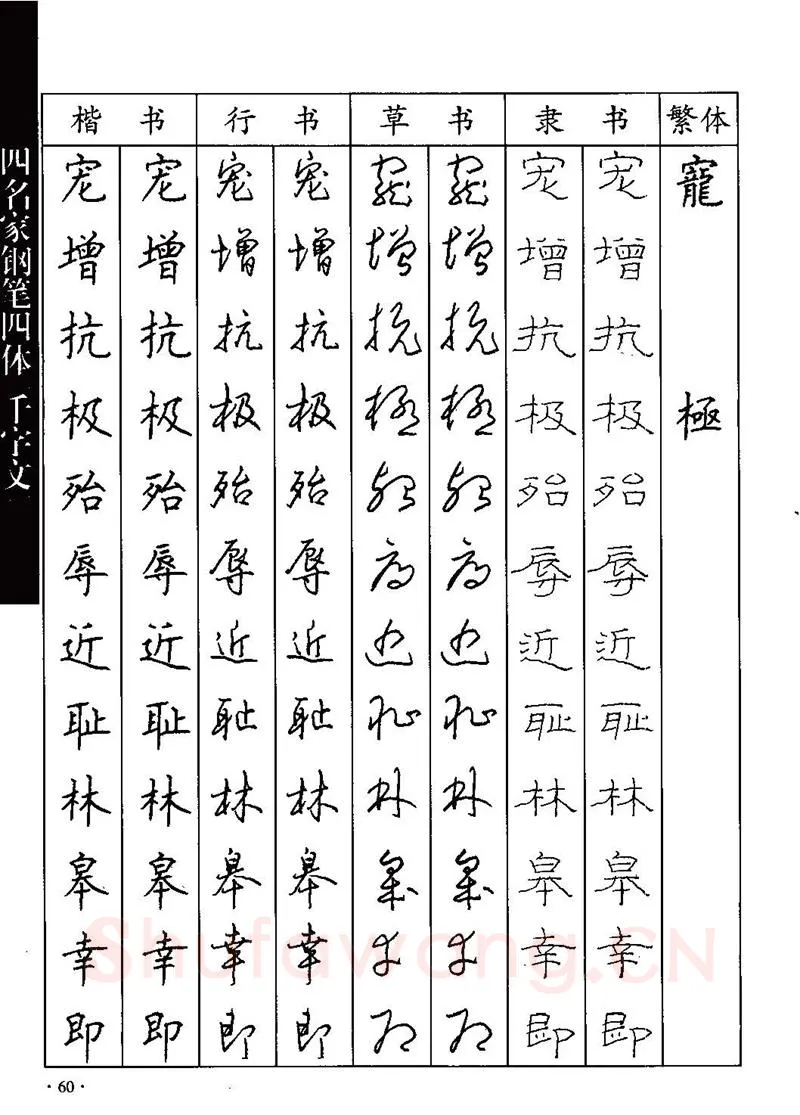 四名家钢笔四体 千字文
楷书 行书 草书 隶书 繁体
宠 宠 宠 宠 宠 宠 宠 宠 寵
增 增 增 增 增 增 增 增
抗 抗 抗 抗 抗 抗 抗 抗
极 极 极 极 極 極 极 极 極
殆 殆 殆 殆 殆 殆 殆 殆
辱 辱 辱 辱 辱 辱 辱 辱
近 近 近 近 近 近 近 近
耻 耻 耻 耻 耻 耻 耻 耻
林 林 林 林 林 林 林 林
皋 皋 皋 皋 皋 皋 皋 皋
幸 幸 幸 幸 幸 幸 幸 幸
即 即 即 即 即 即 即 即
Shufawang.CN
·60·